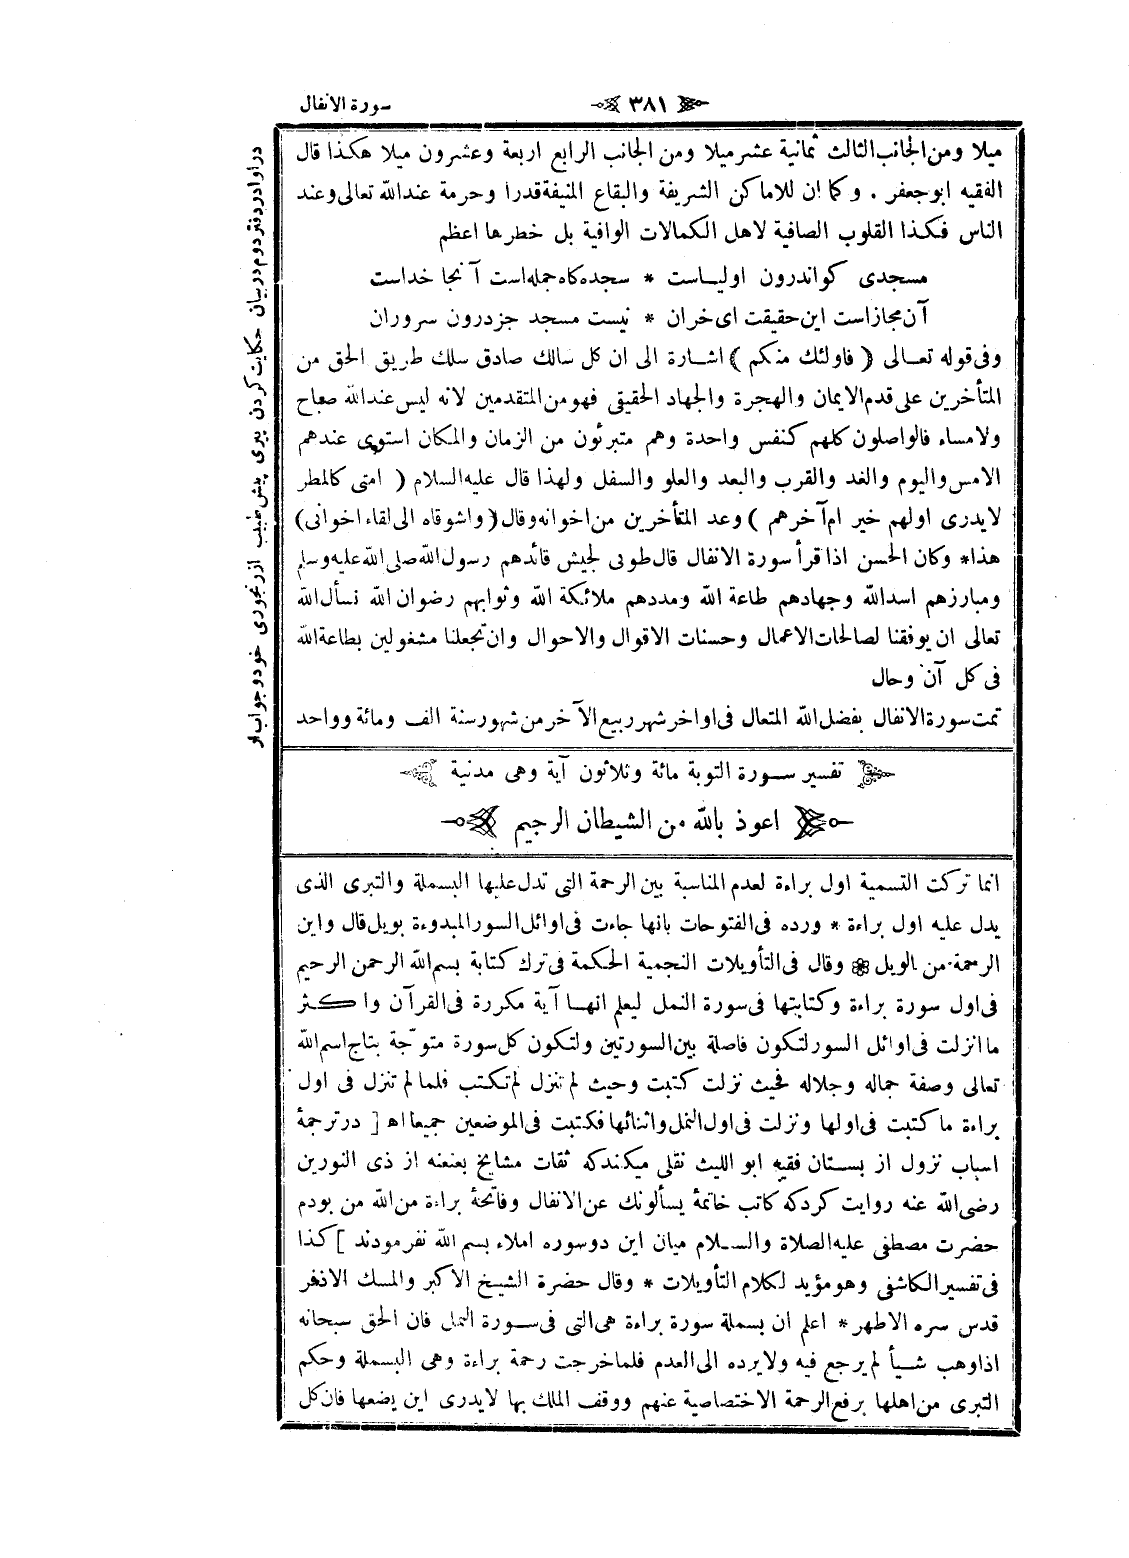 سورة الانفال
٣٨١
ميلا ومن الجانب الثالث ثمانية عشر ميلا ومن الجانب الرابع اربعة وعشرون ميلا هكذا قال
الفقيه ابو جعفر . وكما ان للاماكن الشريفة والبقاع المنيفة قدرا وحرمة عند الله تعالى وعند
الناس فكذا القلوب الصافية لاهل الكمالات الوافية بل خطرها اعظم
مسجدى كو اندرون اولياست * سجده كاه جمله است آنجا خداست
آن مجازاست اين حقيقت اى خران * نيست مسجد جز درون سروران
وفى قوله تعالى ( فاولئك منكم ) اشارة الى ان كل سالك صادق سلك طريق الحق من
المتأخرين على قدم الايمان والهجرة والجهاد الحقيقى فهو من المتقدمين لانه ليس عند الله صباح
ولا مساء فالواصلون كلهم كنفس واحدة وهم متبرئون من الزمان والمكان استوى عندهم
الامس واليوم والغد والقرب والبعد والعلو والسفل ولهذا قال عليه السلام ( امتى كالمطر
لا يدرى اولهم خير ام آخرهم ) وعد المتأخرين من اخوانه وقال ( واشوقاه الى لقاء اخوانى )
هذا * وكان الحسن اذا قرأ سورة الانفال قال طوبى لجيش قائدهم رسول الله صلى الله عليه وسلم
ومبارزهم اسد الله وجهادهم طاعة الله ومددهم ملائكة الله وثوابهم رضوان الله نسأل الله
تعالى ان يوفقنا لصالحات الاعمال وحسنات الاقوال والاحوال وان يجعلنا مشغولين بطاعة الله
فى كل آن وحال
تمت سورة الانفال بفضل الله المتعال فى اواخر شهر ربيع الآخر من شهور سنة الف ومائة وواحد
تفسير سورة التوبة مائة وثلاثون آية وهى مدنية
اعوذ بالله من الشيطان الرجيم
انما تركت التسمية اول براءة لعدم المناسبة بين الرحمة التى تدل عليها البسملة والتبرى الذى
يدل عليه اول براءة * ورده فى الفتوحات بانها جاءت فى اوائل السور المبدوءة بويل قال واين
الرحمة من الويل * وقال فى التأويلات النجمية الحكمة فى ترك كتابة بسم الله الرحمن الرحيم
فى اول سورة براءة وكتابتها فى سورة النمل ليعلم انها آية مكررة فى القرآن واكثر
ما انزلت فى اوائل السور لتكون فاصلة بين السورتين ولتكون كل سورة متوّجة بتاج اسم الله
تعالى وصفة جماله وجلاله فحيث نزلت كتبت وحيث لم تنزل لم تكتب فلما لم تنزل فى اول
براءة ما كتبت فى اولها ونزلت فى اول النمل واثنائها فكتبت فى الموضعين جميعا اه [ در ترجمۀ
اسباب نزول از بستان فقيه ابو الليث نقلى ميكند كه ثقات مشايخ بعنعنه از ذى النورين
رضى الله عنه روايت كرد كه كاتب خاتمۀ يسألونك عن الانفال وفاتحۀ براءة من الله من بودم
حضرت مصطفى عليه الصلاة والسلام ميان اين دو سوره املاء بسم الله نفرمودند ] كذا
فى تفسير الكاشفى وهو مؤيد لكلام التأويلات * وقال حضرة الشيخ الاكبر والمسك الاذفر
قدس سره الاطهر * اعلم ان بسملة سورة براءة هى التى فى سورة النمل فان الحق سبحانه
اذا وهب شيأ لم يرجع فيه ولا يرده الى العدم فلما خرجت رحمة براءة وهى البسملة وحكم
التبرى من اهلها برفع الرحمة الاختصاصية عنهم ووقف الملك بها لا يدرى اين يضعها فان كل
در اوادر دفتر دوم در بيان حكايت كردن پيرى پيش طبيب از رنجورى خود وجواب او